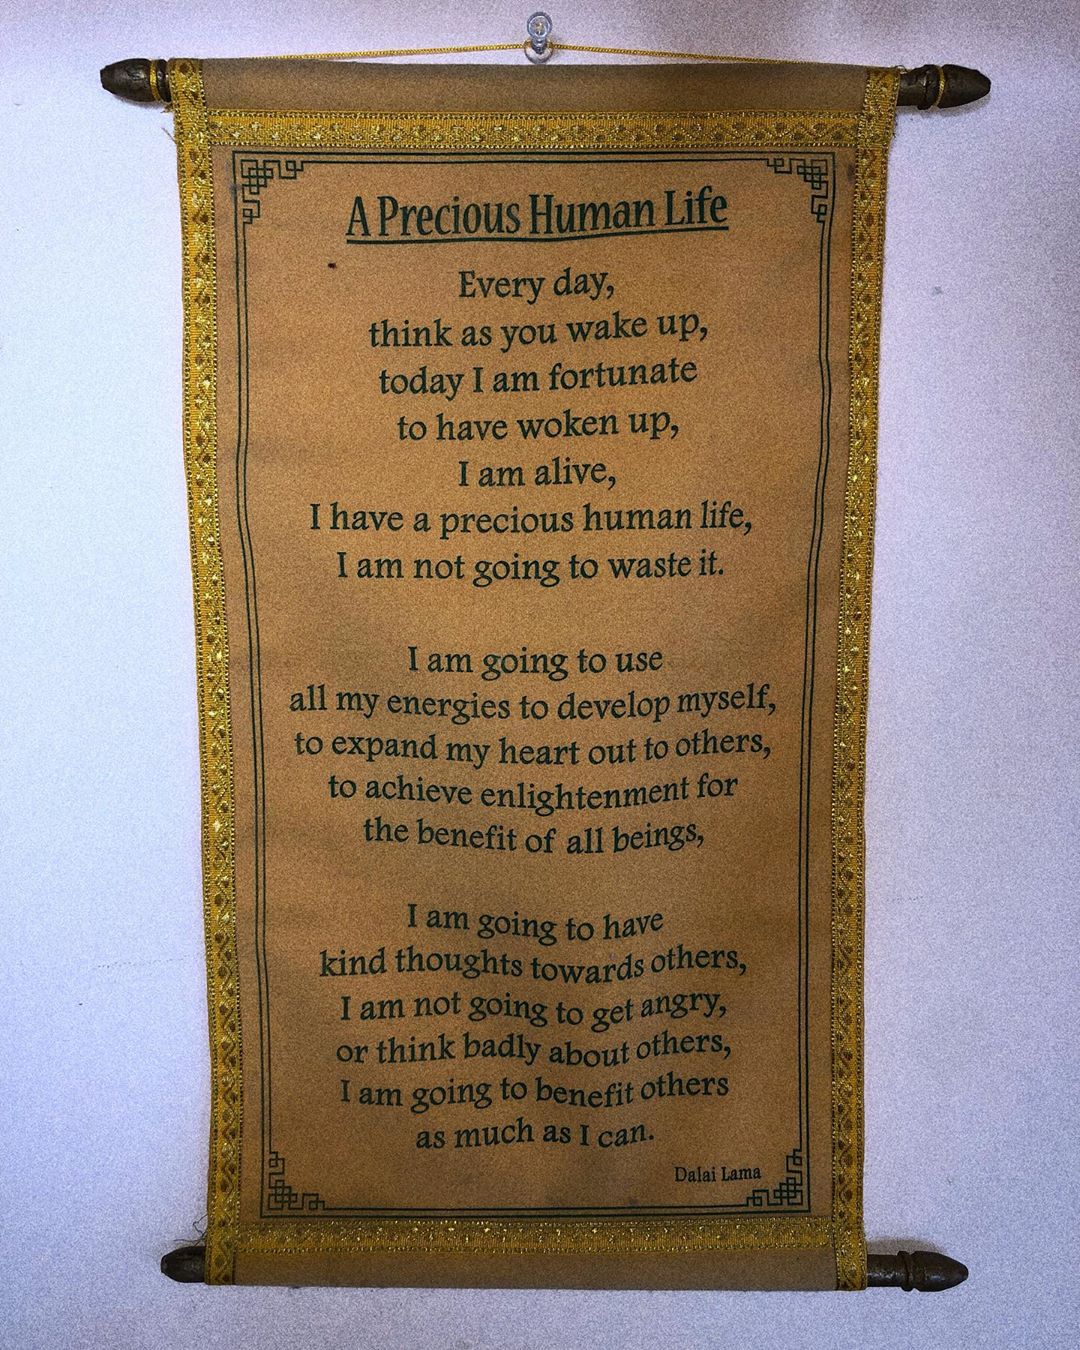 A Precious Human Life
Every day,
think as you wake up,
today I am fortunate
to have woken up,
I am alive,
I have a precious human life,
I am not going to waste it.
I am going to use
all my energies to develop myself,
to expand my heart out to others,
to achieve enlightenment for
the benefit of all beings,
I am going to have
kind thoughts towards others,
I am not going to get angry,
or think badly about others,
I am going to benefit others
as much as I can.
Dalai Lama